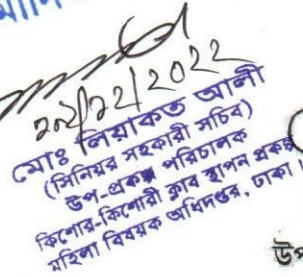 ২২/১২/2022
মোঃ লিয়াকত আলী
(সিনিয়র সহকারী সচিব)
উপ-প্রকল্প পরিচালক
কিশোর-কিশোরী ক্লাব স্থাপন প্রকল্প
মহিলা বিষয়ক অধিদপ্তর, ঢাকা।